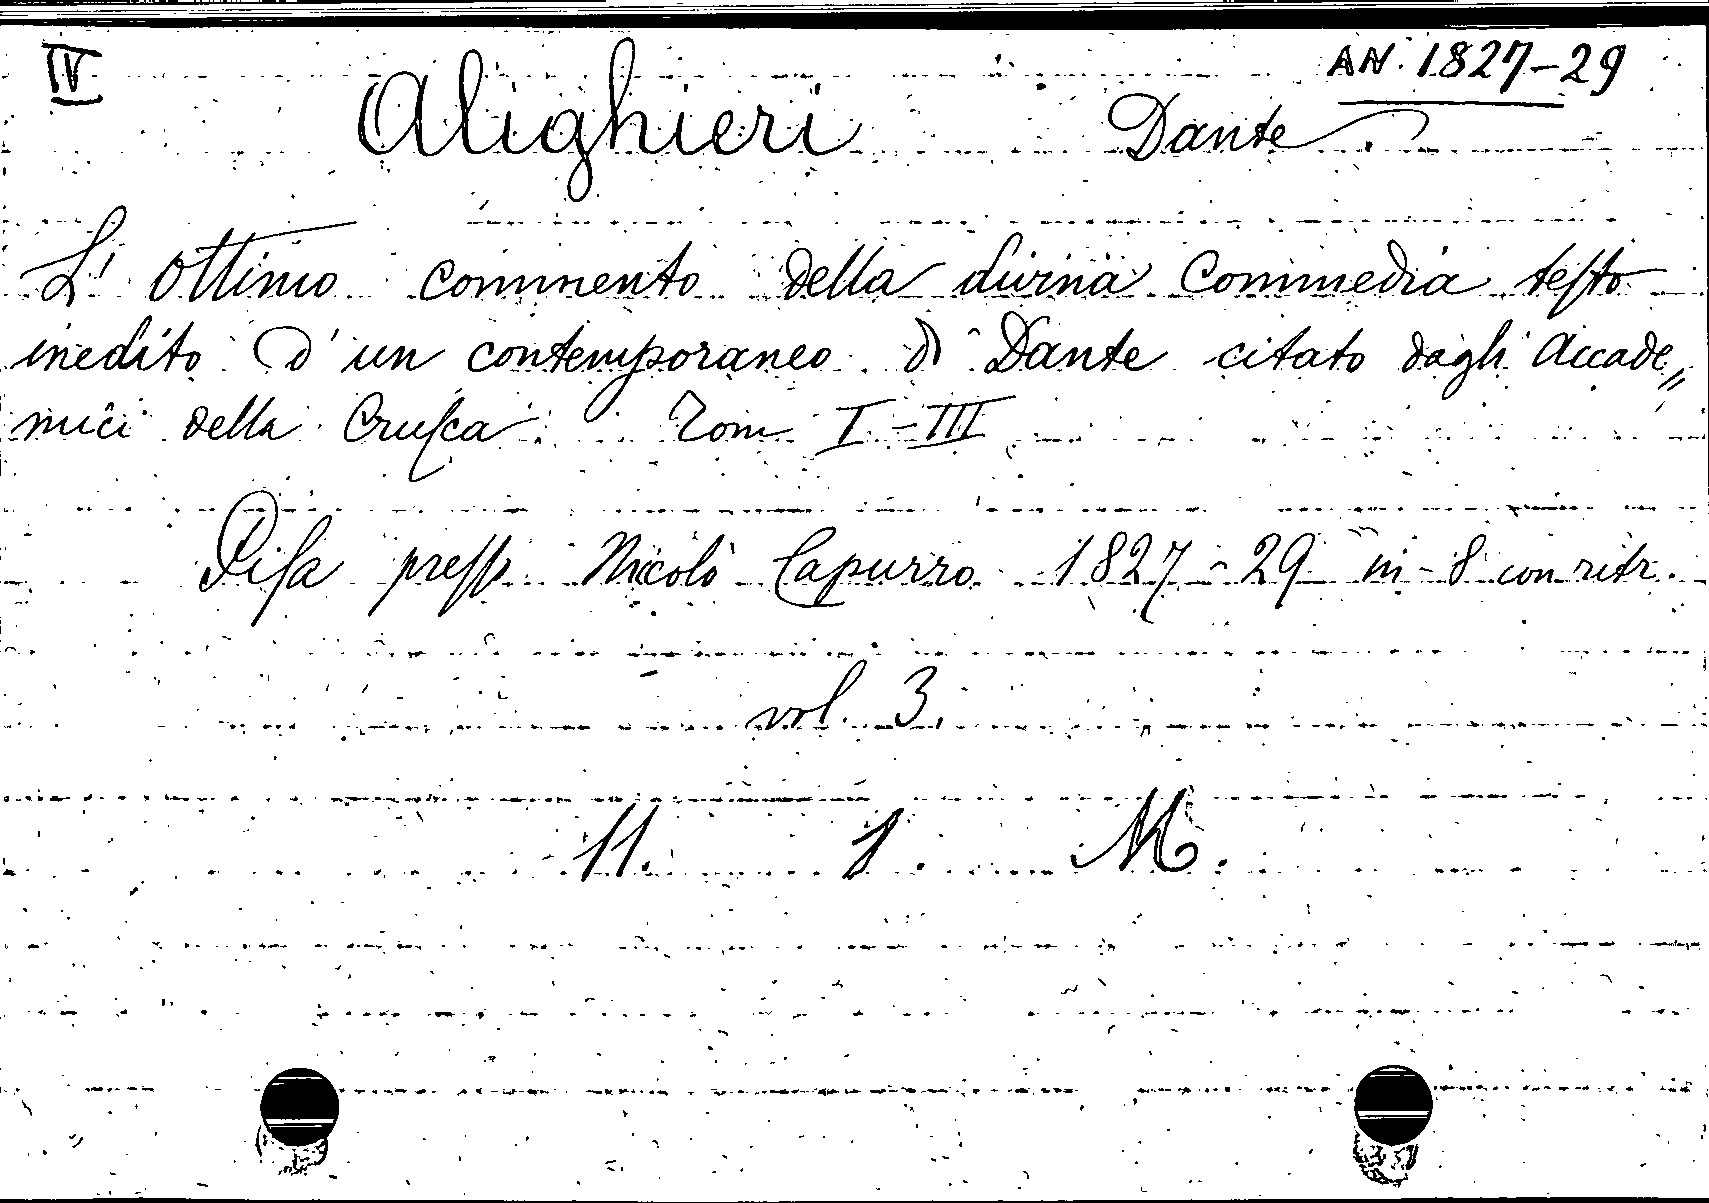 IV
AN. 1827-29
Alighieri Dante
L' Ottimo commento della divina Commedia testo
inedito d'un contemporaneo di Dante citato dagli Accade„
mici della Crusca. Tom I-III
Pisa presso Nicolò Capurro 1827-29 in-8 con ritr.
vol. 3.
11. 1. M.